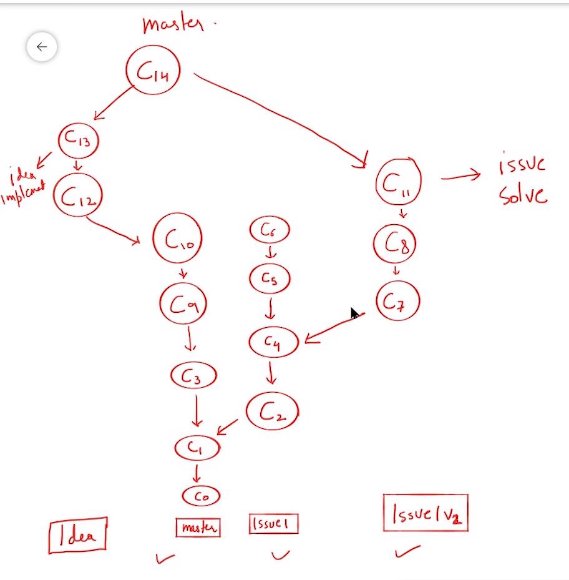 master.
C14
C13
idea
implemet
C12
C11
issue
solve
C10
C6
C8
C5
C9
C7
C4
C3
C2
C1
C0
Idea
master
Issue1
Issue1v2